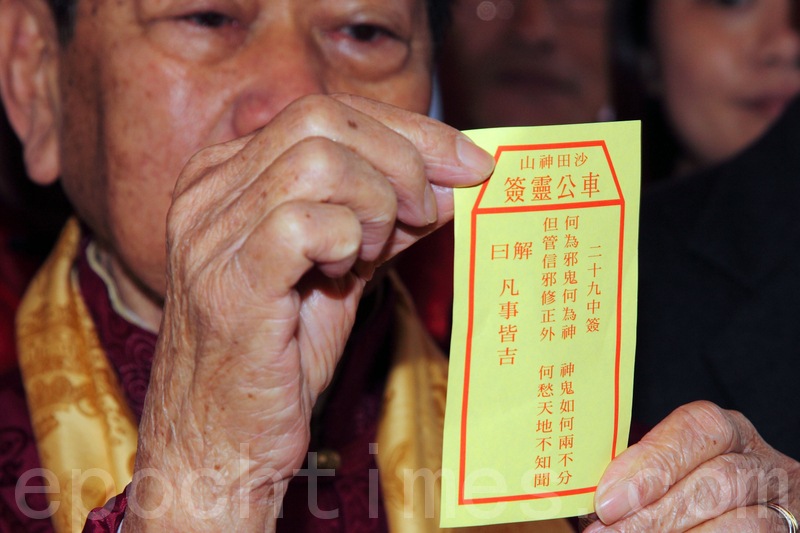 沙田神山
車公靈簽
二十九中簽
何為邪鬼何為神　神鬼如何兩不分
但管信邪修正外　何愁天地不知聞
解曰　凡事皆吉
epochtimes.com